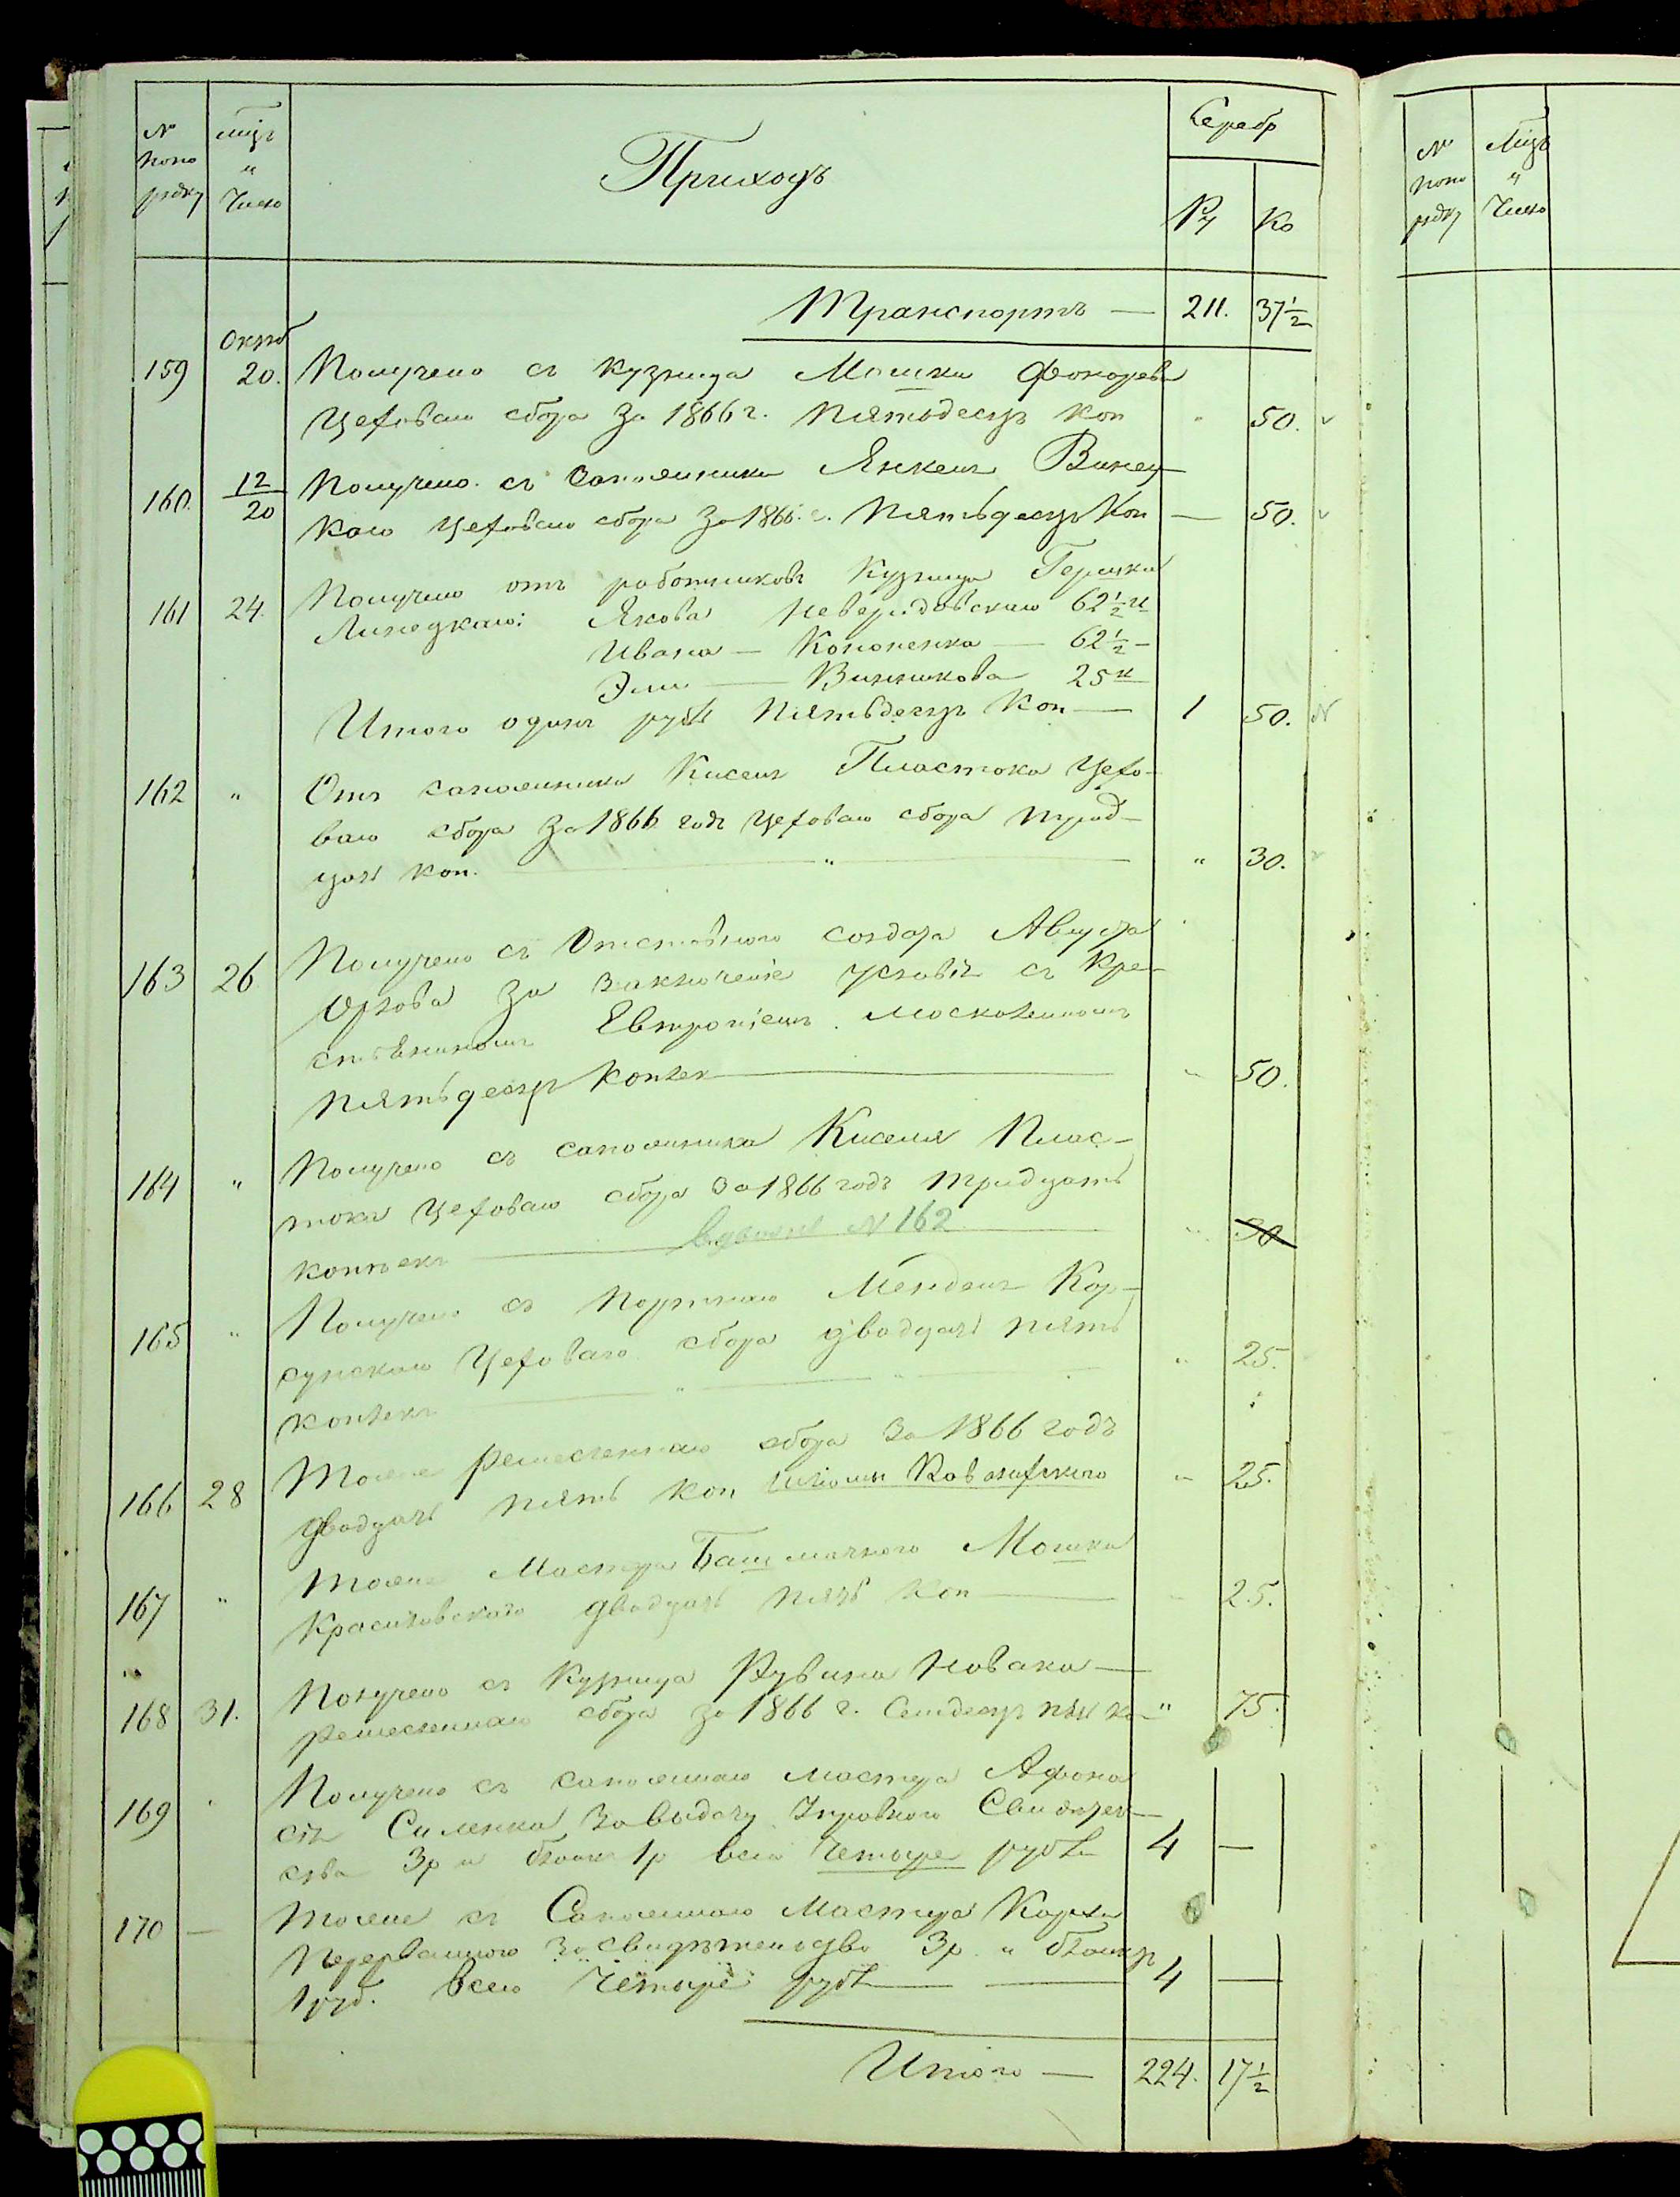 № поно рядку
мцъ и Число
Приходъ
Серебр
Ру Ко
Транспортъ — 211. 37½
Октб
159 20. Получено съ кузнеца Мошки Фокорева
Цеховаго сбора за 1866 г. пятьдесятъ коп " 50.
160. 12/20 Получено съ Сапожника Янкеля Винец-
каго Цеховаго сбора за 1866 г. Пятьдесятъ Коп — 50.
161 24. Получено отъ работниковъ Кузнеца Гершки
Линецкаго: Якова Неверидовскаго 62½ к
Ивана — Кононенка — 62½ —
Эли — Винникова 25 к
Итого одинъ рубль Пятьдесятъ Коп — 1 50. N
162 " Отъ сапожника Киселя Пластока Цехо-
ваго сбора за 1866 годъ Цеховаго сбора трид-
цать коп. " " 30.
163 26 Получено съ Отставного солдата Августа
Орлова за заключеніе условія съ Кре-
стьяниномъ Евтропіемъ Москаленкомъ
пятьдесятъ Копѣек — " 50.
164 " Получено съ сапожника Киселя Плас-
тока Цеховаго сбора за 1866 годъ тридцать
копѣекъ — N 162 " 30
165 " Получено съ Портнаго Менделя Кор-
сунскаго Цеховаго сбора двадцать пять
копѣекъ " " " 25.
166 28 Тоже Ремесленнаго сбора за 1866 годъ
двадцать пять коп " 25.
167 " Тоже Мастера Башмачнаго Мошка
Красиловскаго двадцать пять коп — 25.
168 31. Получено съ Кузнеца Рувина Новака —
ремесленнаго сбора за 1866 г. Семдесятъ пять ко " 75.
169 " Получено съ сапожнаго мастера Афона
сія Силенка За выдачу Управнаго Свидѣтел-
ства 3 р и бланк 1 р всего Четыре рубля 4 —
170 — Тоже съ Сапожнаго Мастера Карпа
за свидѣтельство 3 р. и бланкъ
1 руб. всего Четыре рубл — 4 —
Итого — 224. 17½
№ поно рядку
Мцъ и Число